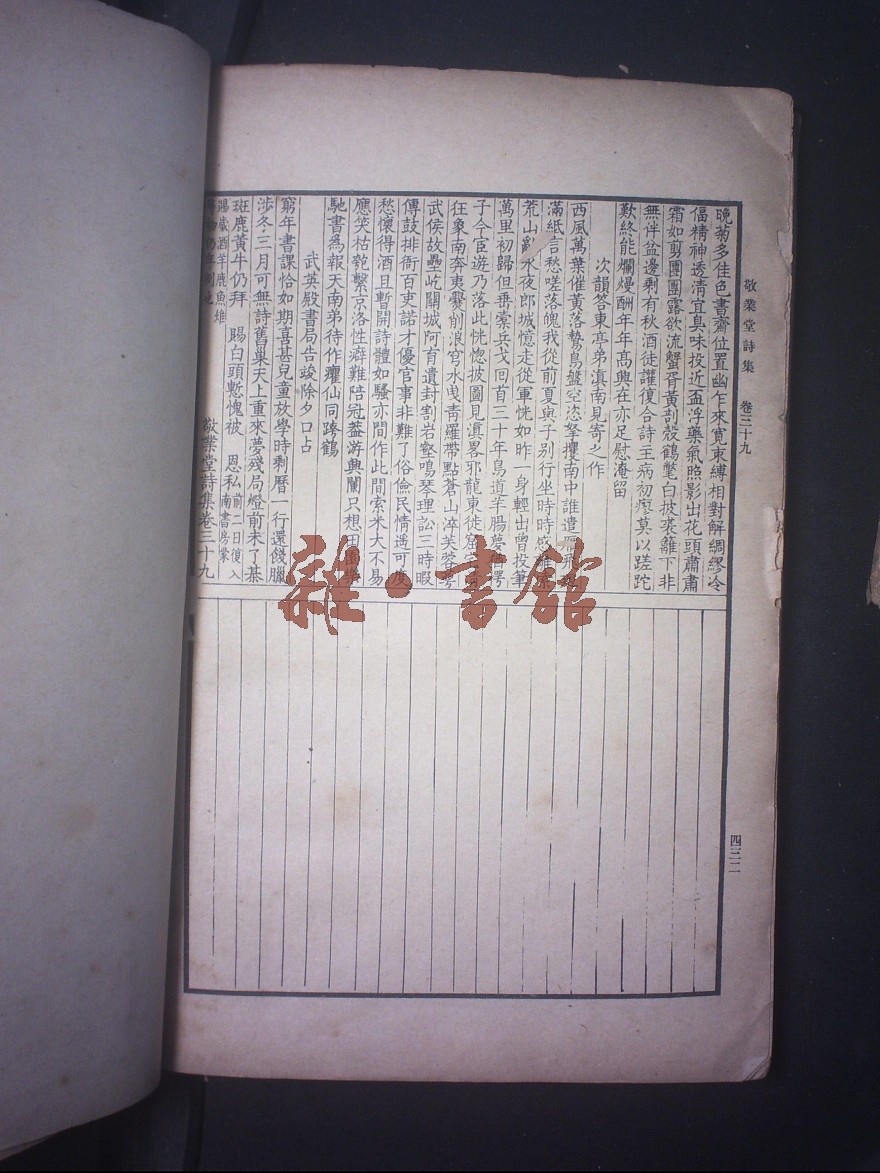 敬業堂詩集 卷三十九
四三二
晚菊多佳色書齋位置幽乍來寬束縛相對解綢繆冷
偪精神透清宜臭味投近盃浮藥氣照影出花頭肅肅
霜如剪團團露欲流蟹胥黃剖殼鶴氅白披裘籬下非
無伴盆邊剩有秋酒徒讙復合詩王病初瘳莫以蹉跎
歎終能爛熳酬年年高興在亦足慰淹留
次韻答東亭弟滇南見寄之作
西風萬葉催黃落鷙鳥盤空恣拏攫南中誰遣
滿紙言愁嗟落魄我從前夏與子別行坐時時感離
荒山亂水夜郎城憶走從軍恍如昨一身輕出曾投筆
萬里初歸但垂橐兵戈回首三十年鳥道羊腸夢猶愕
子今宦遊乃落此恍惚披圖見滇畧邪龍東徙
往象南奔夷爨削浪穹水曳靑羅帶點蒼山淬芙蓉
武侯故壘屹關城阿育遺封割岩壑鳴琴理訟三時暇
傳鼓排衙百吏諾才優官事非難了俗儉民情遥可度
愁懷得酒且暫開詩體如騷亦間作此間索米大不易
應笑枯匏繫京洛性癖難陪冠葢游興闌只想田園
馳書爲報天南弟待作癯仙同跨鶴
武英殿書局告竣除夕口占
窮年書課恰如期喜甚兒童放學時剩曆一行還餞臘
涉冬三月可無詩舊巢天上重來夢殘局燈前未了棊
斑鹿黃牛仍拜 賜白頭慙愧被 恩私前一日復入南書房蒙
賜歲酒羊鹿魚雉
敬業堂詩集卷三十九
雜·書館